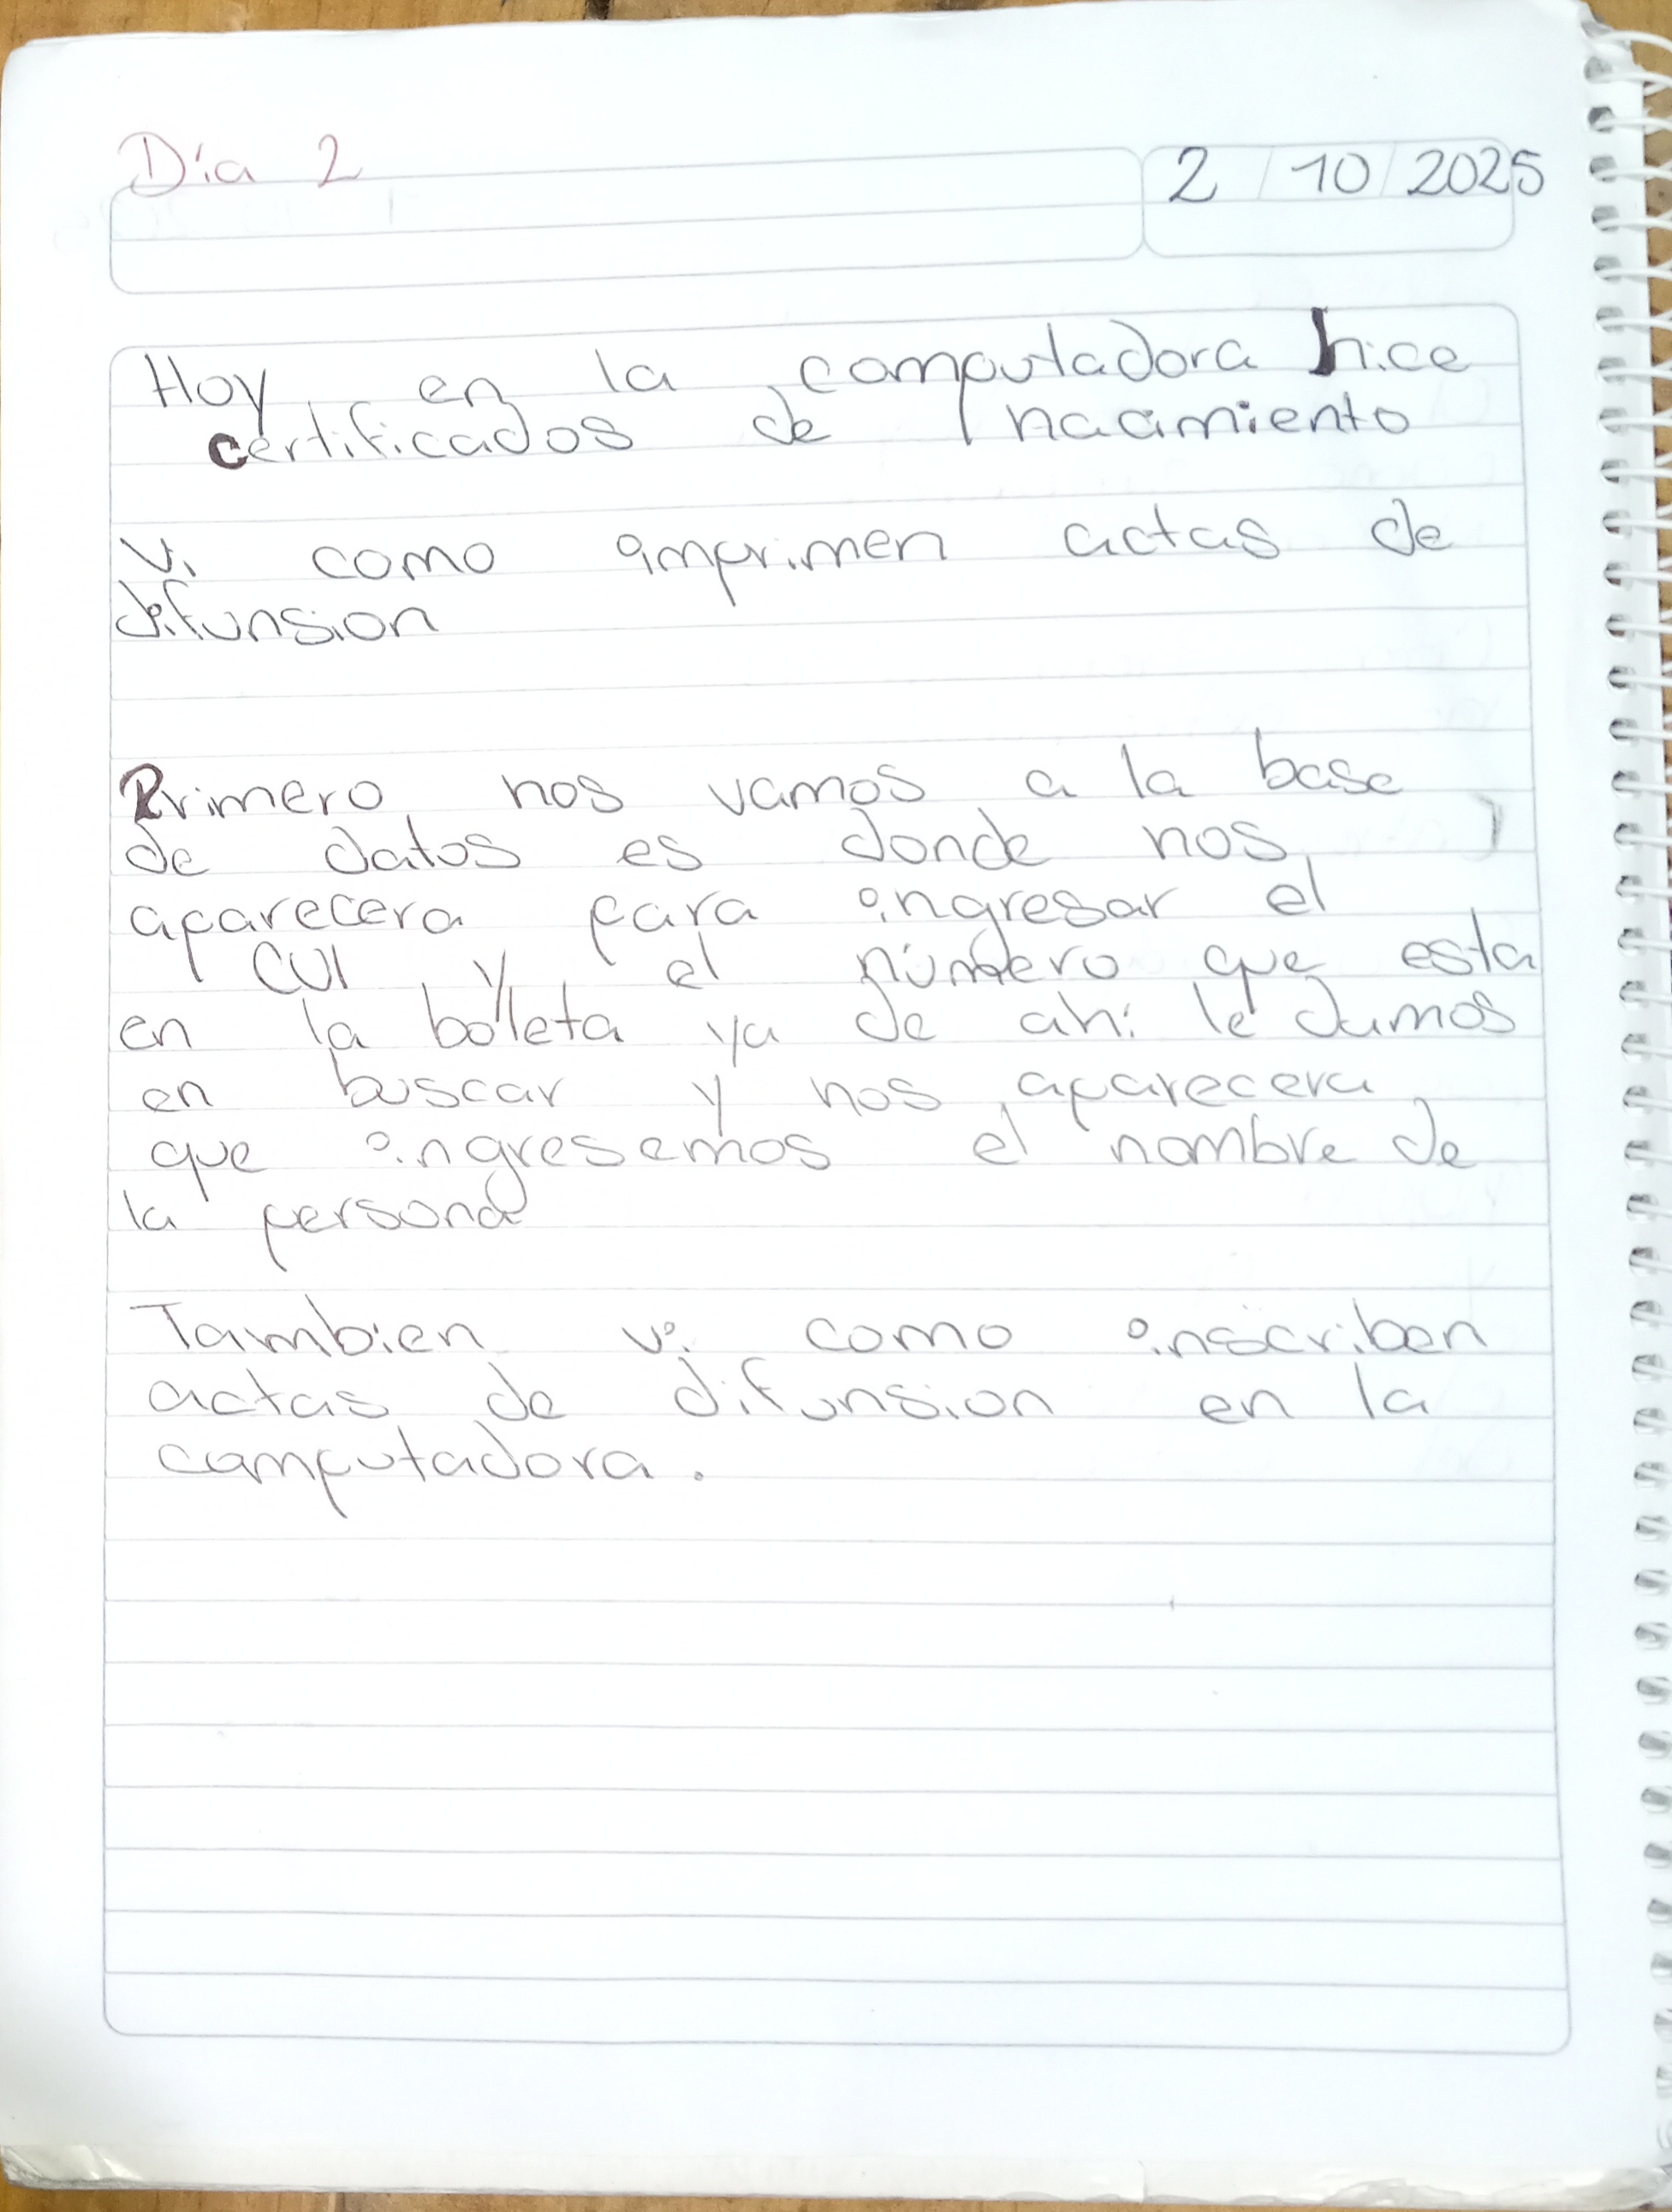 Día 2
2 / 10 / 2025
Hoy en la computadora hice
certificados de nacimiento
Vi como imprimen actas de
difunsion
Primero nos vamos a la base
de datos es donde nos
aparecera para ingresar el
CUI y el número que esta
en la boleta ya de ahi le damos
en buscar y nos aparecera
que ingresemos el nombre de
la persona
Tambien vi como inscriben
actas de difunsion en la
computadora.